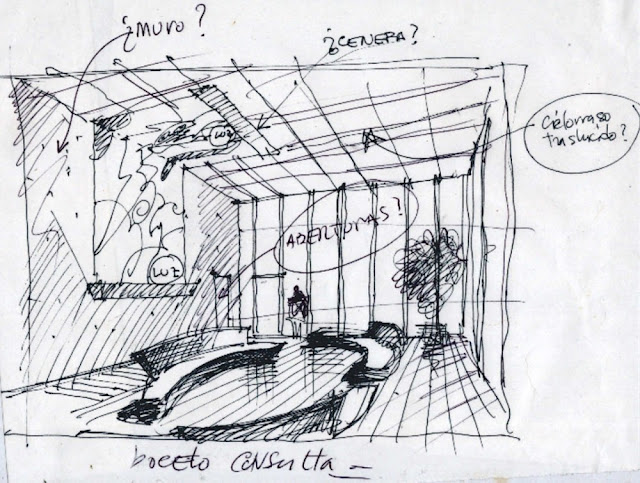 ¿MURO?
¿CENEFA?
Cielorraso
traslúcido?
LUZ
ABERTURAS?
LUZ
boceto consulta